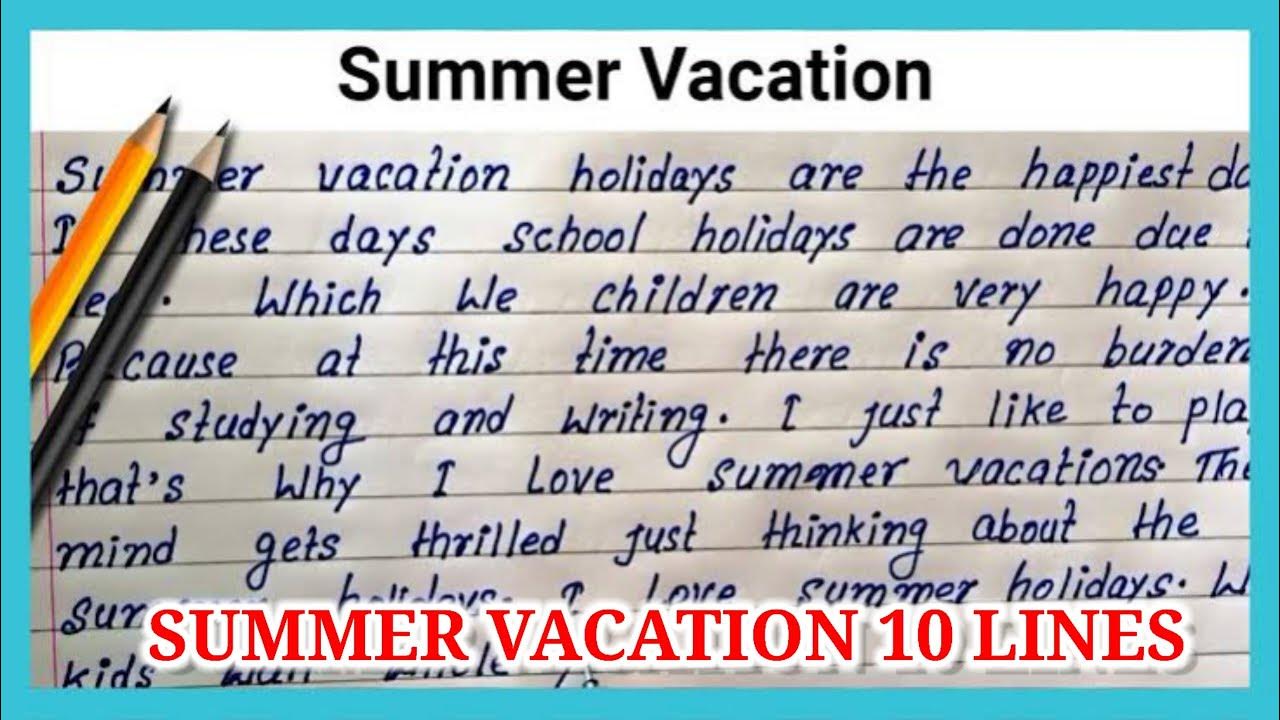 Summer Vacation
vacation holidays are the happiest
days school holidays are done due
Which We children are very happy.
at this time there is no
studying and writing. I just like to
that's Why I Love summer vacations. The
mind gets thrilled just thinking about the
holidays. I Love summer holidays.
SUMMER VACATION 10 LINES
kids